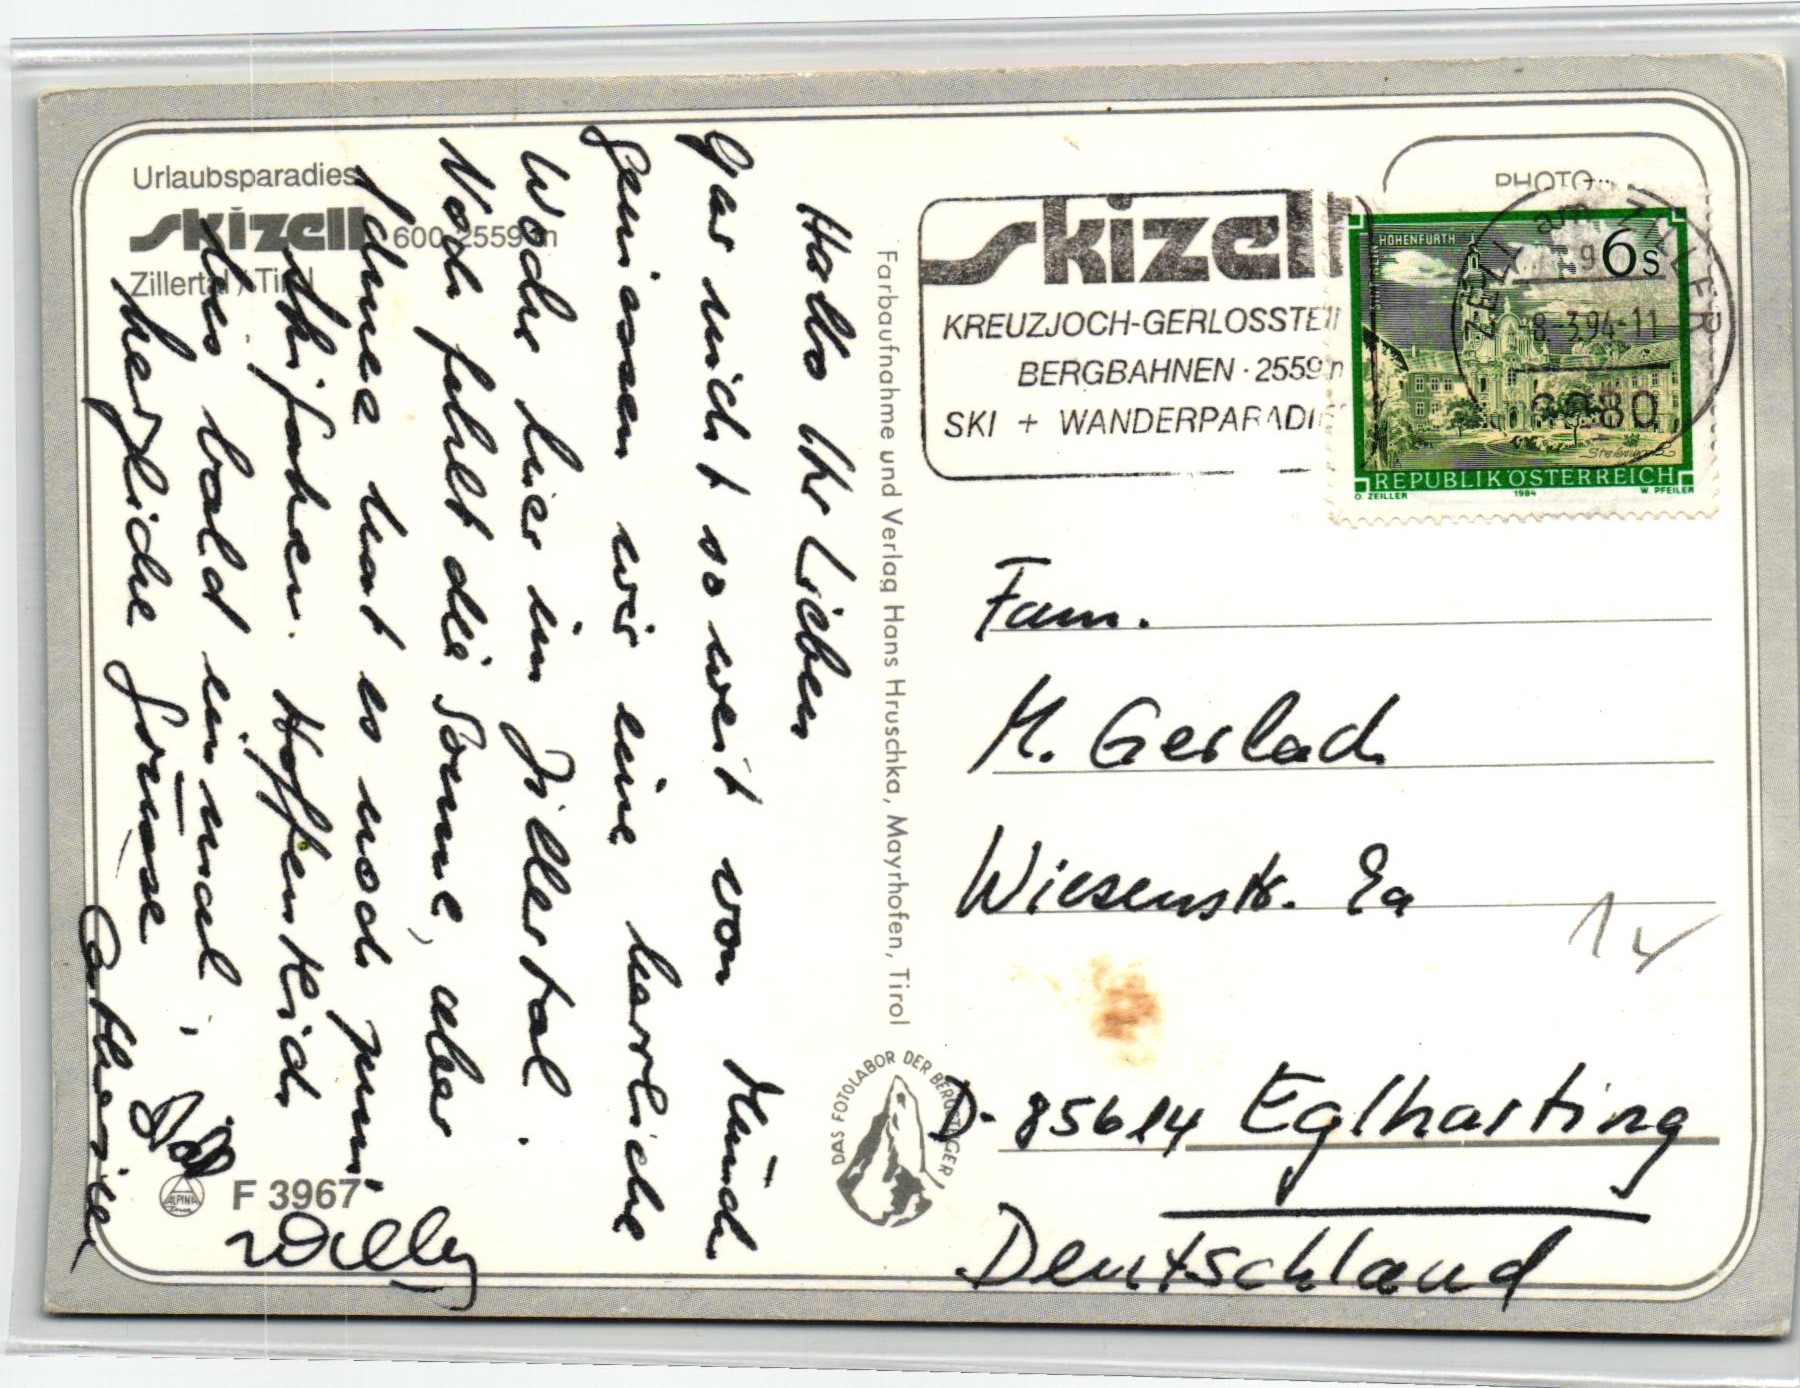 Urlaubsparadies
skizell 600-2559 m
Zillertal / Tirol
Hallo Ihr Lieben
Gar nicht so weit von Münch
geniessen wir eine herrliche
Woche hier im Zillertal.
Noch fehlt die Sonne, aber
Schnee hat es noch zum
Skifahren. Hoffentlich
bis bald einmal,
herzliche Grüsse
Willy
Catherine
F 3967
ALPINA
Farbaufnahme und Verlag Hans Hruschka, Mayrhofen, Tirol
DAS FOTOLABOR DER BERGSTEIGER
skizell
KREUZJOCH-GERLOSSTEIN
BERGBAHNEN · 2559 m
SKI + WANDERPARADIES
PHOTO
ZELL am ZILLER
8.-3.94-11
6280
STIFT HOHENFURTH
6s
REPUBLIK ÖSTERREICH
O. ZEILLER 1984 W. PFEILER
Fam.
M. Gerlach
Wiesenstr. 9a
D-85614 Eglharting
Deutschland